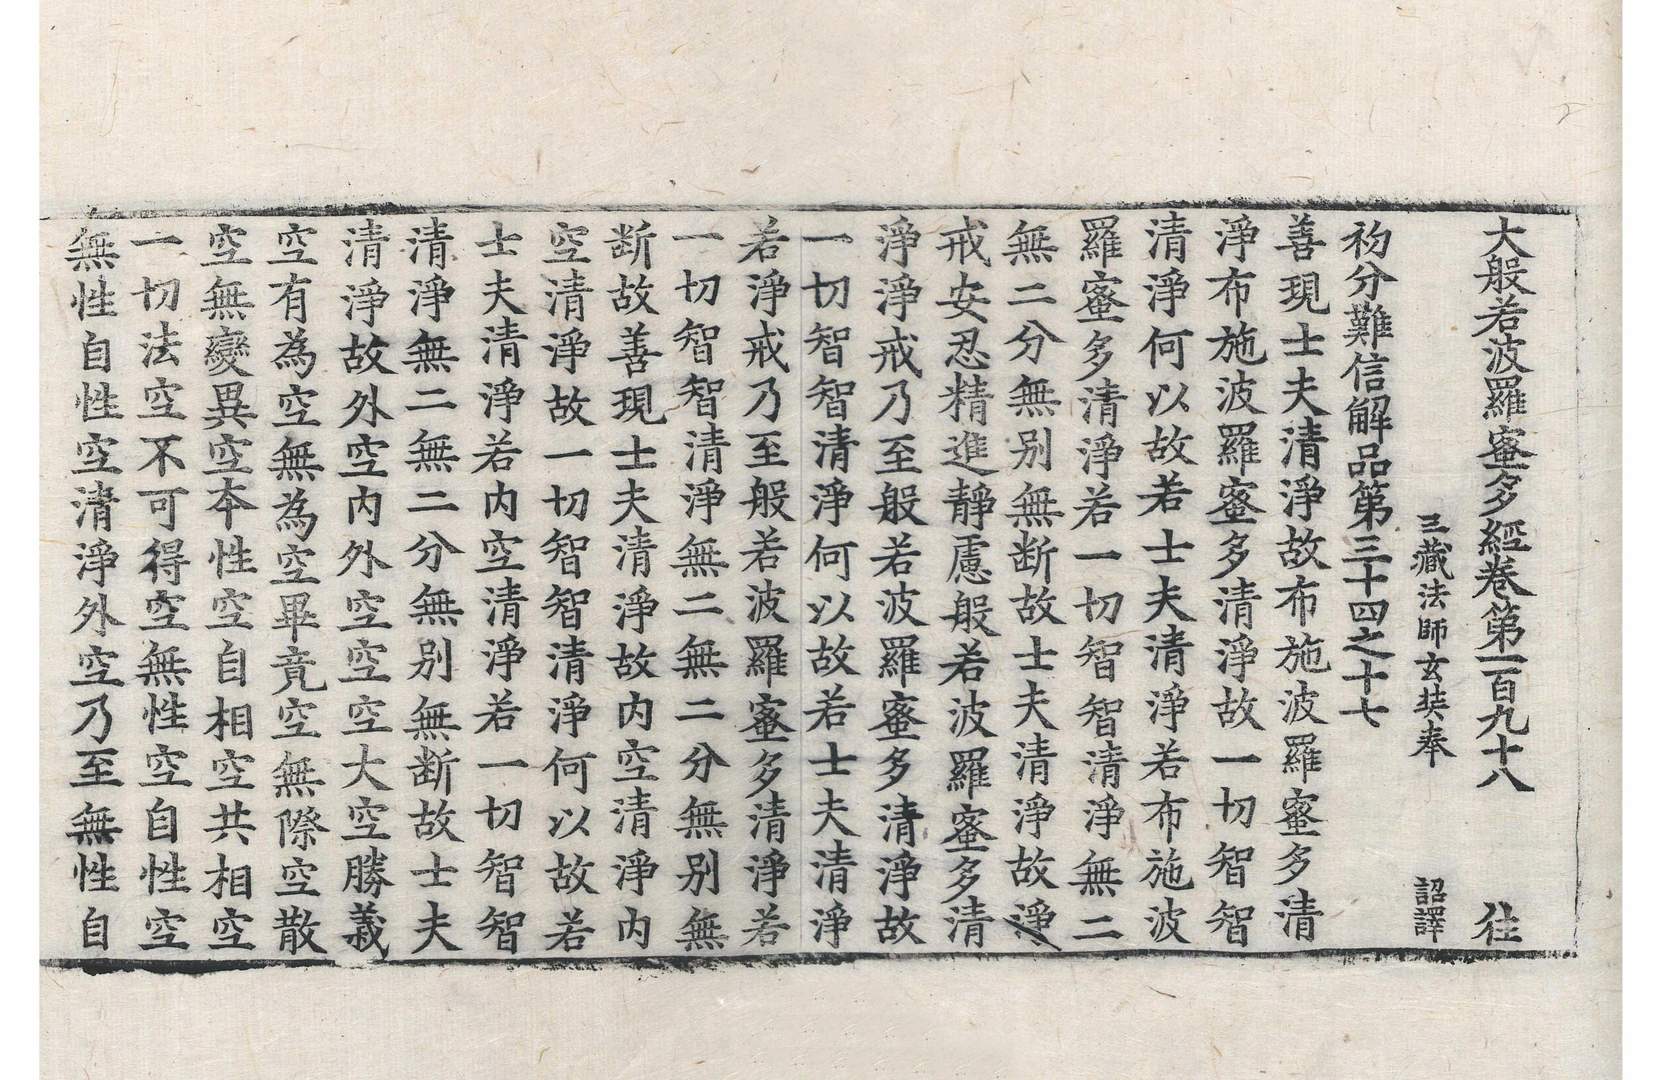 大般若波羅蜜多經卷第一百九十八 往
三藏法師玄奘奉 詔譯
初分難信解品第三十四之十七
善現士夫清淨故布施波羅蜜多清
淨布施波羅蜜多清淨故一切智智
清淨何以故若士夫清淨若布施波
羅蜜多清淨若一切智智清淨無二
無二分無別無断故士夫清淨故淨
戒安忍精進靜慮般若波羅蜜多清
淨淨戒乃至般若波羅蜜多清淨故
一切智智清淨何以故若士夫清淨
若淨戒乃至般若波羅蜜多清淨若
一切智智清淨無二無二分無別無
断故善現士夫清淨故内空清淨内
空清淨故一切智智清淨何以故若
士夫清淨若内空清淨若一切智智
清淨無二無二分無別無断故士夫
清淨故外空内外空空空大空勝義
空有為空無為空畢竟空無際空散
空無變異空本性空自相空共相空
一切法空不可得空無性空自性空
無性自性空清淨外空乃至無性自